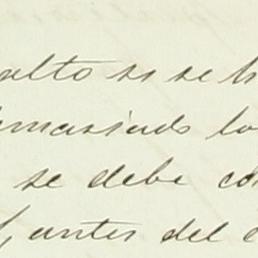 alto si se h
demasiado lo
se debe co
antes del c